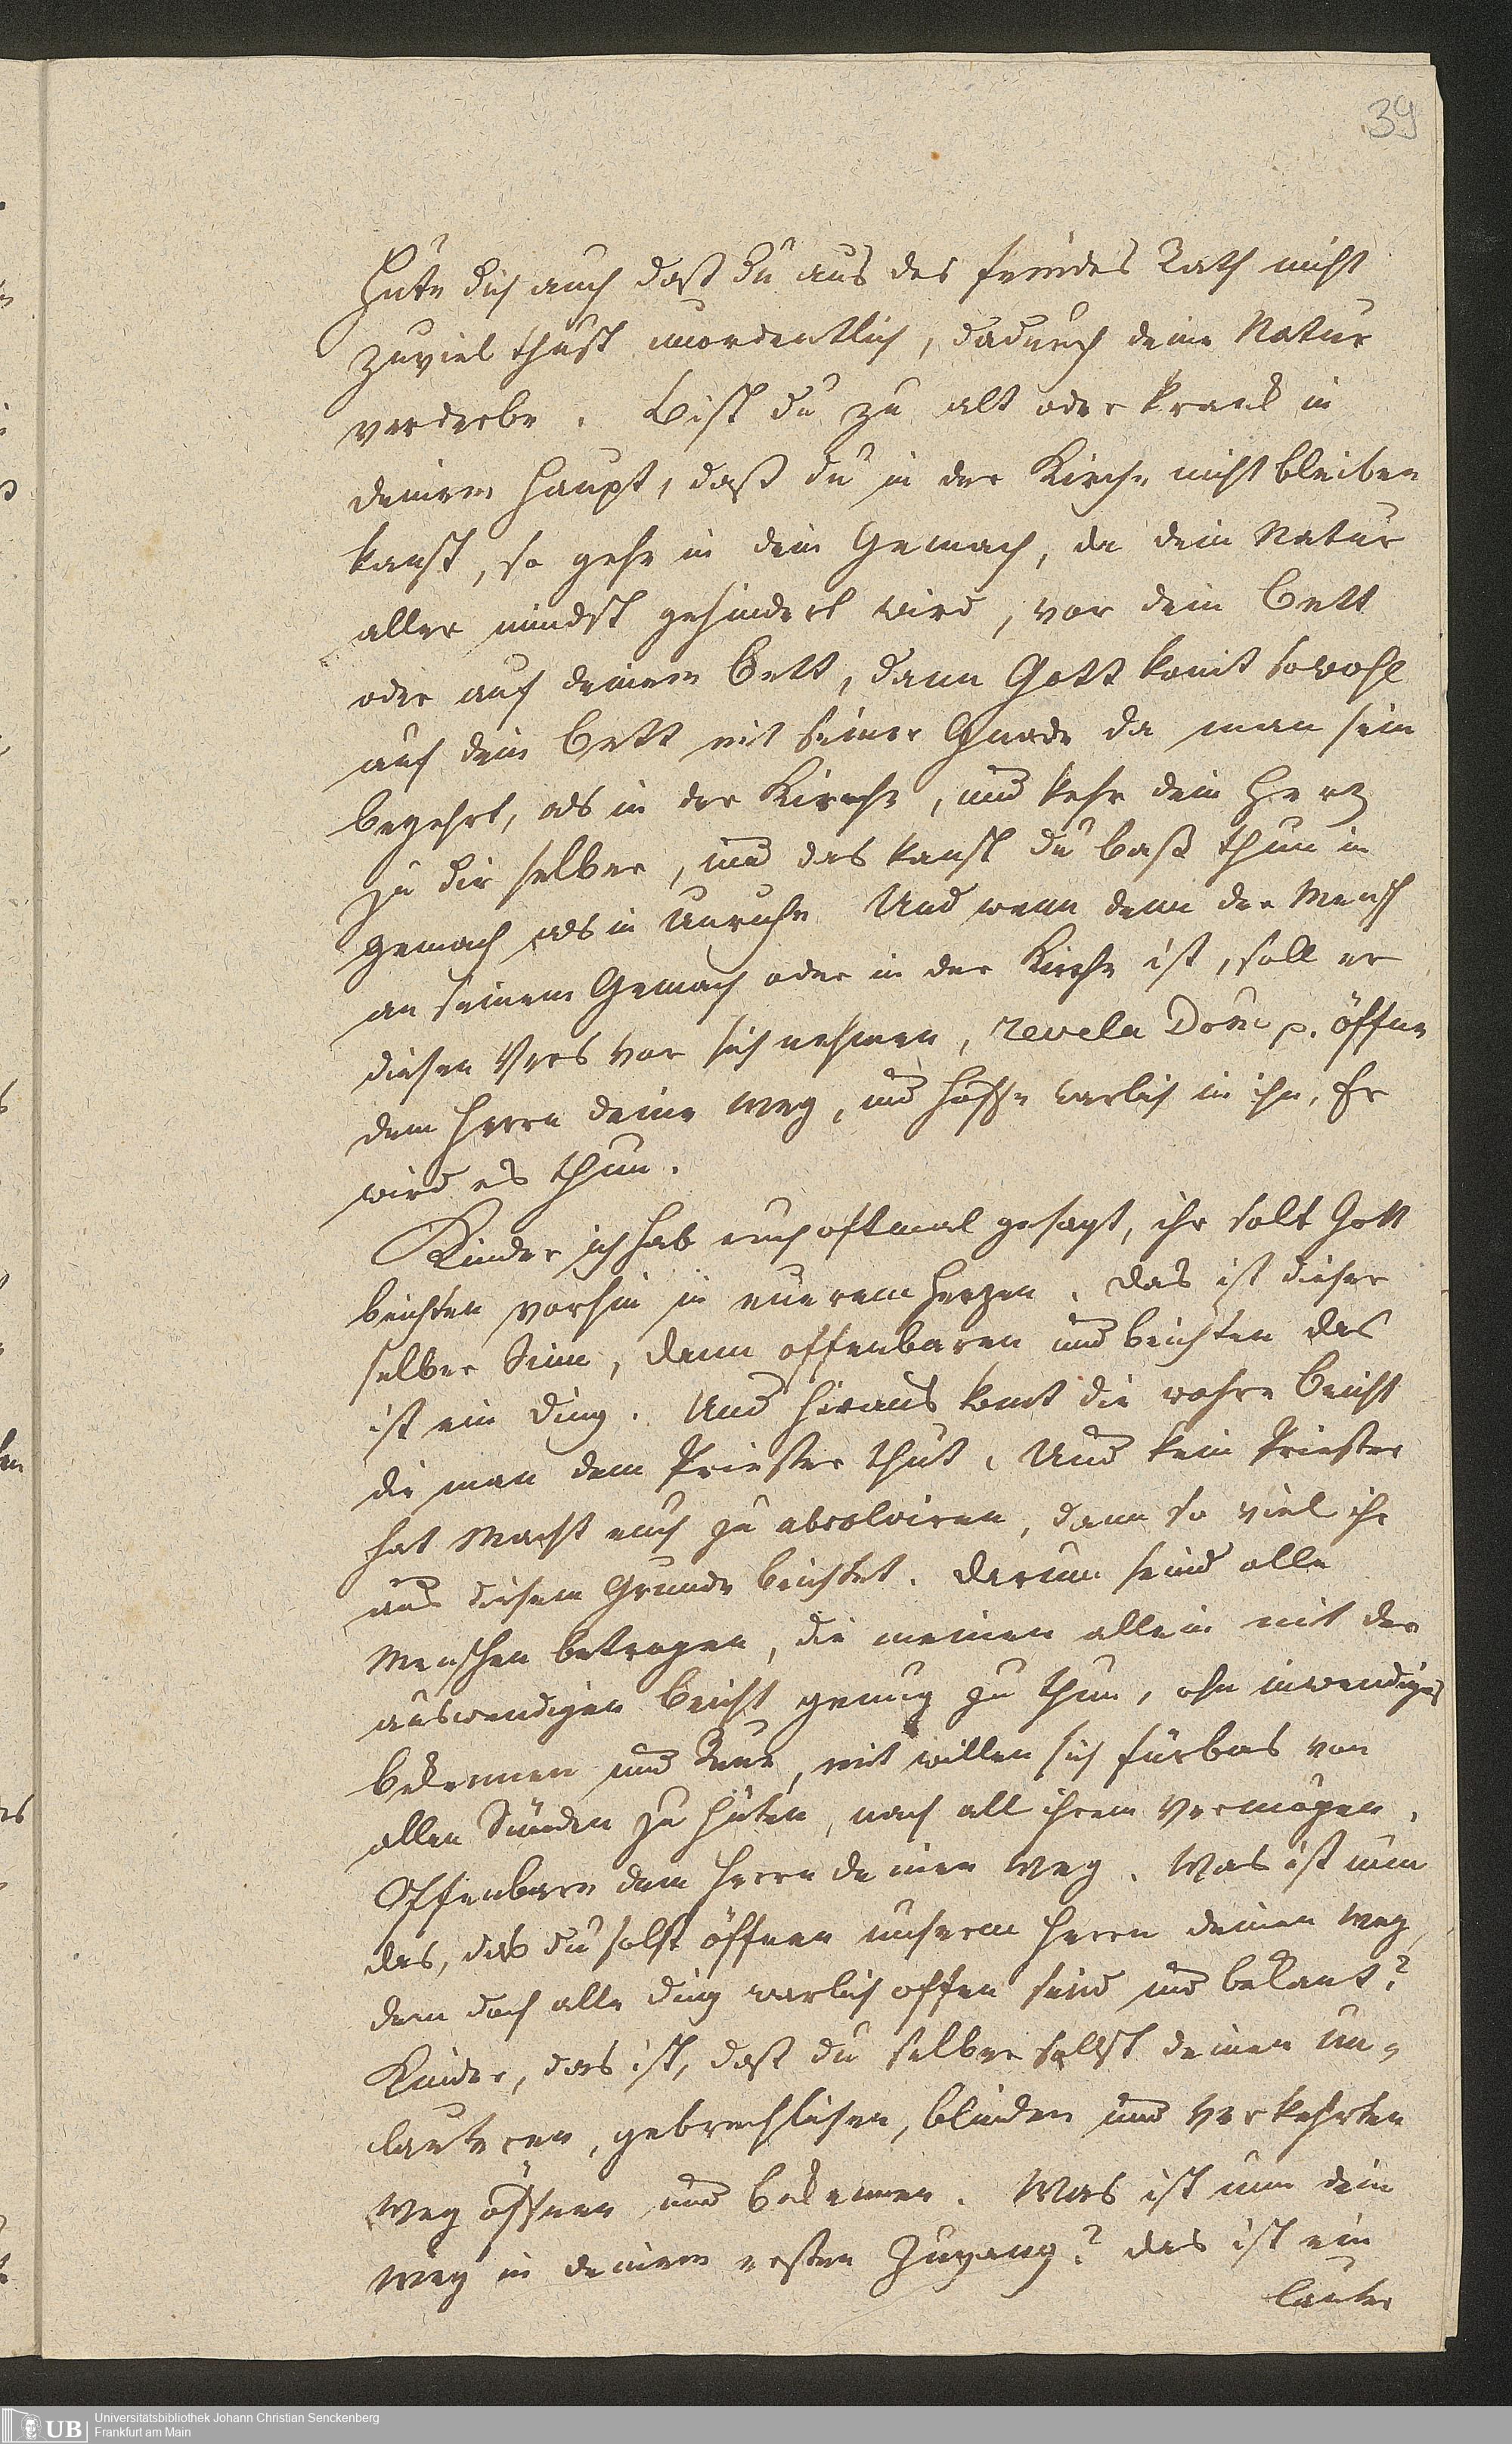 39
Hüte dich auch daß du aus des feindes Rath nicht
zuviel thust unordentlich, dadurch deine Natur
verderbe. Bist du zu alt oder kranck in
deinem Haupt, daß du in der Kirche nicht bleiben
kanst, so gehe in dein Gemach, da dein Natur
aller mindst gehindert wird, vor dein Bett
oder auf deinem Bett, dann Gott komt sowohl
auf dein Bett mit seiner Gnade da man sein
begehrt, als in der Kirche, und kehr dein Hertz
zu dir selber, und das kanst du baß thun in
gemach als in Unruhe Und wenn denn der Mensch
an seinem Gemach oder in der Kirche ist, soll er
diesen Vers vor sich nehmen, revela Domo p. öffne
dem Herrn deine weg, und hoffe warlich in ihn, Er
wird es thun.
Kinder ich hab euch oftmal gesagt, ihr solt Gott
beichten vorhin in euerem Herzen. das ist dieser
selber Sinn, dann offenbaren und beichten das
ist ein Ding. Und hieraus komt die wahre beicht
die man dem Priester thut. Und kein Priester
hat Macht euch zu absolviren, dann so viel ihr
aus diesem Grunde beichtet. Darum seind alle
Menschen betrogen, die meinen allein mit der
auswendigen beicht genug zu thun, ohn inwendiges
bekennen und Reue, mit willen sich fürbas von
allen Sünden zu hüten, nach all ihrem Vermögen.
Offenbare dem Herrn deinen Weg. Was ist nun
das, das du solst öffnen unserm Herrn deinen weg,
dem doch alle ding warlich offen seind und bekant?
Kinder, das ist, daß du selber sollst deinen un¬
lauteren, gebrechlichen, blinden und verkehrten
Weg öffnen und bekennen. Was ist nun dein
Weg in deinem ersten Zugang? das ist ein
lauter
UB
Universitätsbibliothek Johann Christian Senckenberg
Frankfurt am Main